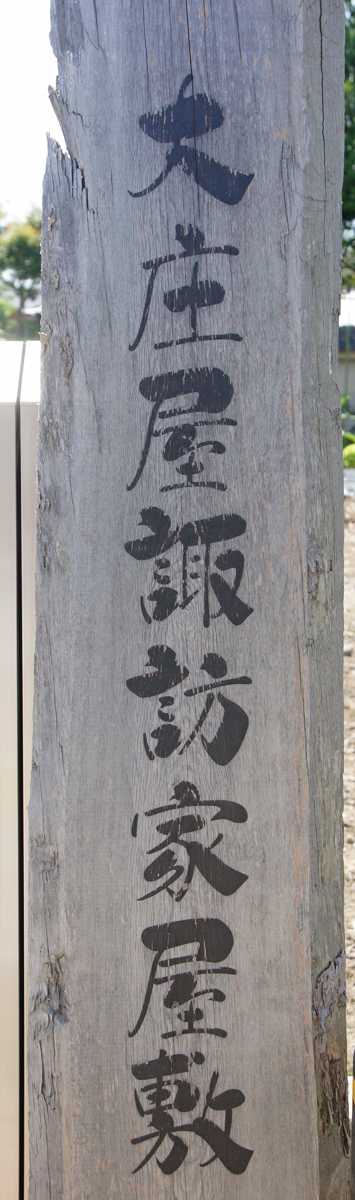 大庄屋諏訪家屋敷